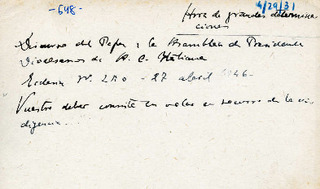 -548-
4/29/31
Hora de grandes determina
ciones
Discurso del Papa a la Asamblea de Presidentes
Diocesanos de A. C. Italiana
Ecclesia Nº 250 - 27 abril 1946.
Vuestro deber consiste en volar en socorro de la in
digencia.